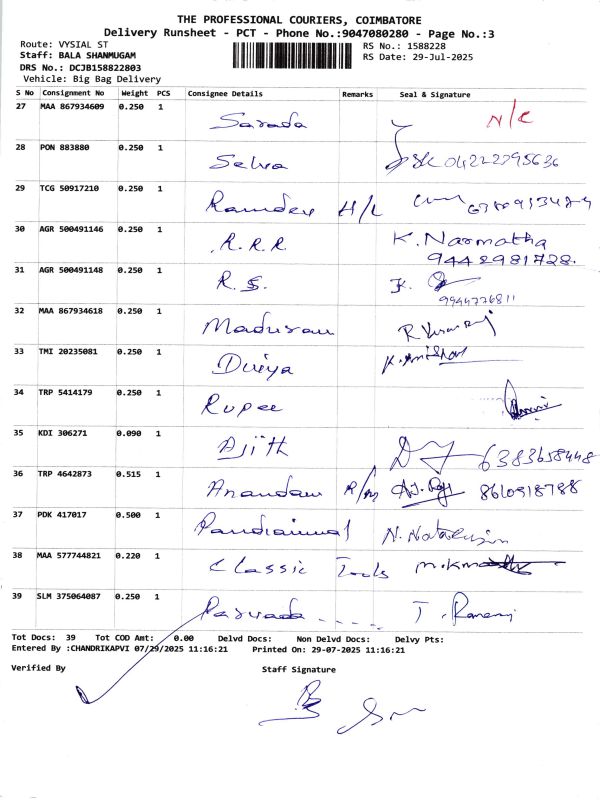 THE PROFESSIONAL COURIERS, COIMBATORE
Delivery Runsheet - PCT - Phone No.:9047080280 - Page No.:3
Route: VYSIAL ST
RS No.: 1588228
Staff: BALA SHANMUGAM
RS Date: 29-Jul-2025
DRS No.: DCJB158822803
Vehicle: Big Bag Delivery
S No Consignment No Weight PCS Consignee Details Remarks Seal & Signature
27 MAA 867934609 0.250 1 Sarada N/C
28 PON 883880 0.250 1 Selva 04222795636
29 TCG 50917210 0.250 1 Ramdev H/L
30 AGR 500491146 0.250 1 R.R.R K. Narmatha
9442981728.
31 AGR 500491148 0.250 1 R.S. K.
9944726811
32 MAA 867934618 0.250 1
33 TMI 20235081 0.250 1
34 TRP 5414179 0.250 1 Rupee
35 KDI 306271 0.090 1 Ajith 6383658448
36 TRP 4642873 0.515 1 Anandam R/m 8610918788
37 PDK 417017 0.500 1 N. Natarajan
38 MAA 577744821 0.220 1 Classic Tools
39 SLM 375064087 0.250 1
Tot Docs: 39 Tot COD Amt: 0.00 Delvd Docs: Non Delvd Docs: Delvy Pts:
Entered By :CHANDRIKAPVI 07/29/2025 11:16:21 Printed On: 29-07-2025 11:16:21
Verified By Staff Signature